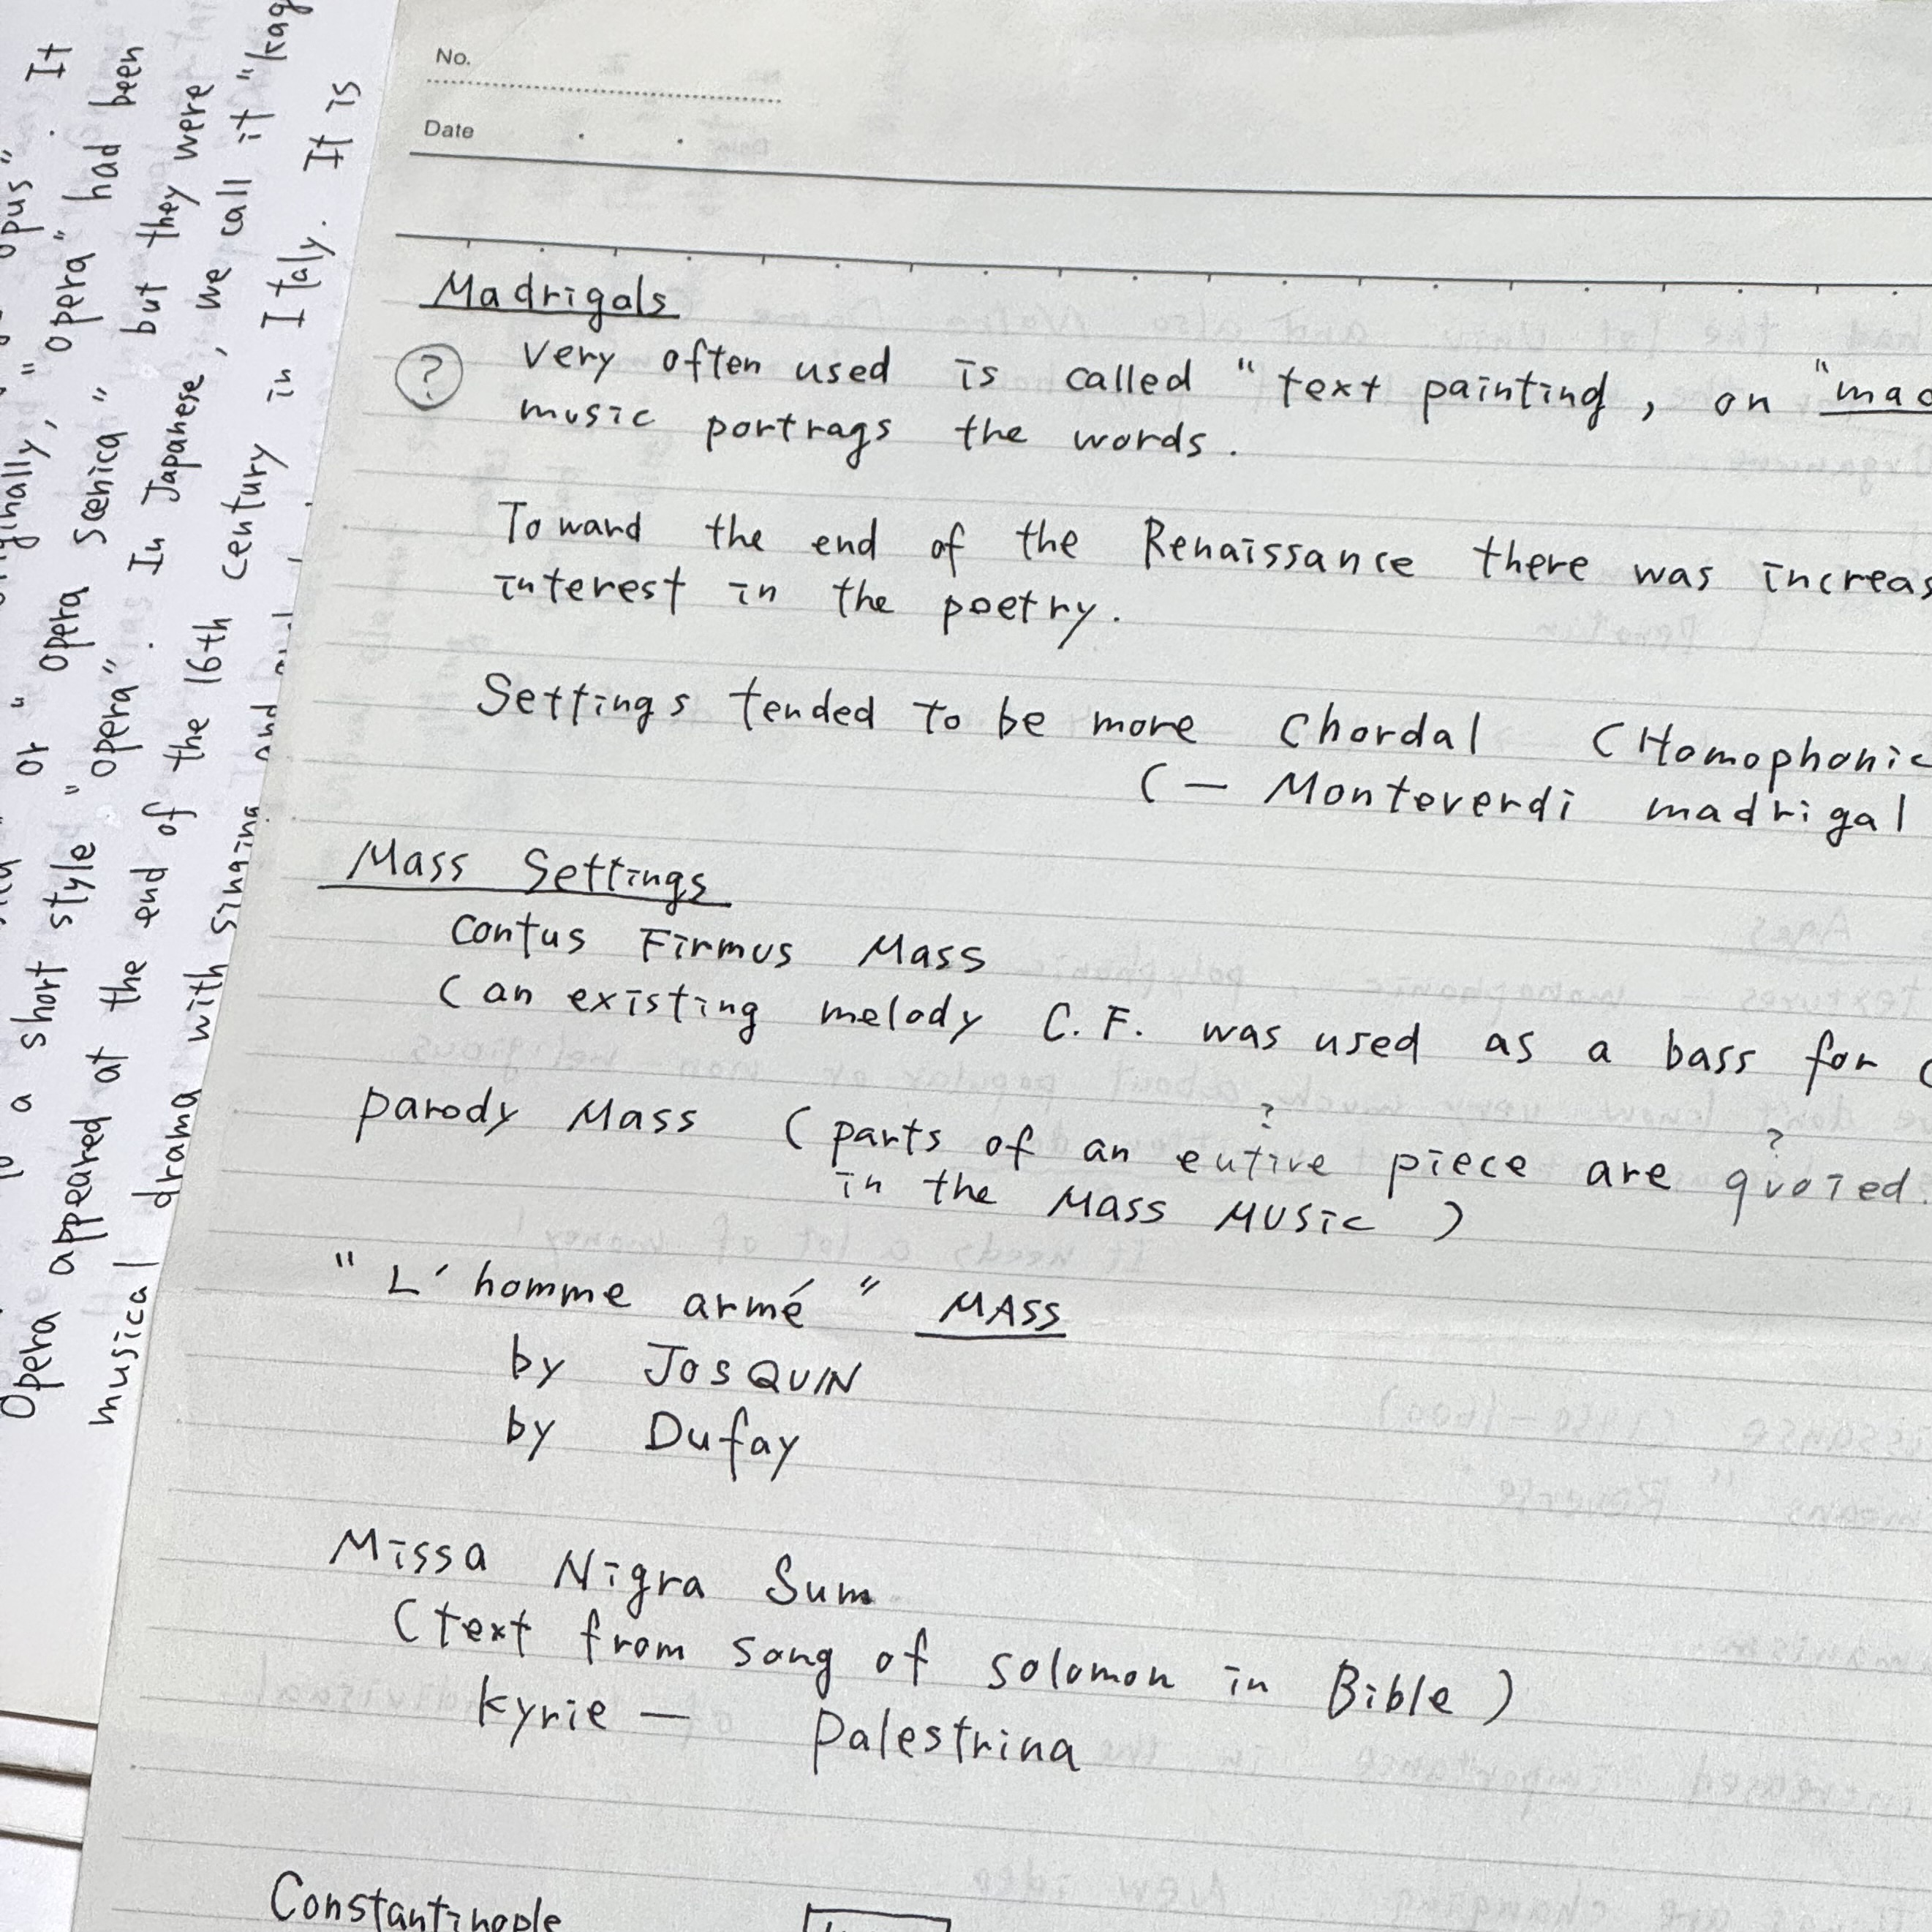 No.
Date
Madrigals
? very often used is called "text painting, on "mad
music portrags the words.
Toward the end of the Renaissance there was increas
interest in the poetry.
Settings tended to be more Chordal (Homophonic
(— Monteverdi madrigal
Mass Settings
contus Firmus Mass
(an existing melody C.F. was used as a bass for
parody Mass (parts of an eutire? piece are quoied?.
in the Mass Music)
"L'homme armé" MASS
by JOSQUIN
by Dufay
Missa Nigra Sum
(text from song of solomon in Bible)
kyrie — Palestrina
Constantinople
opus". It
originally, "opera" had been
or "opera scenica" but they were
a short style "opera". In Japanese, we call it "kag
Opera appeared at the end of the 16th century in Italy. It is
musical drama with singing and